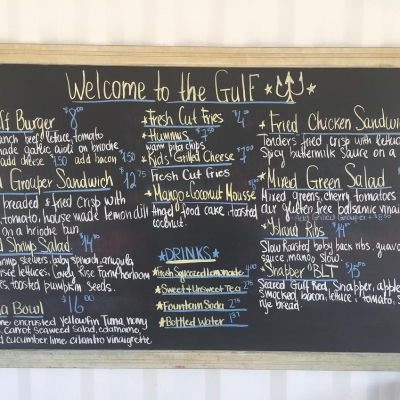 Welcome to the Gulf
ff Burger $8.00
beef, lettuce, tomato
made garlic aioli on brioche
add cheese $1.50 add bacon $1.50
Grouper Sandwich $12.75
breaded & fried crisp with
tomato, house made lemon dill
on a brioche bun
Shrimp Salad
shrimp skewers, baby spinach, arugula
lettuces, Candy Rise Farm heirloom
toasted pumpkin seeds.
a Bowl $16.00
encrusted Yellowfin Tuna
carrot, seaweed salad, edamame,
cucumber, lime cilantro vinaigrette
Fresh Cut Fries
Hummus $7.50
Kid's Grilled Cheese $7.00
Fresh Cut Fries
Mango & Coconut Mousse
Angel food cake, toasted
coconut.
DRINKS
Fresh Squeezed Lemonade
Sweet & Unsweet Tea
Fountain Soda
Bottled Water
Fried Chicken Sandwi
Tenders fried crisp with lettuc
Spicy buttermilk sauce on a
Mixed Green Salad
Mixed greens, cherry tomatoes
our gluten free balsamic vinai
Add Grilled Grouper
Island Ribs
Slow Roasted baby back ribs, guava
sauce, mango slaw.
Snapper BLT
Seared Gulf Red Snapper, apple
smocked bacon, lettuce, tomato,
rye bread.